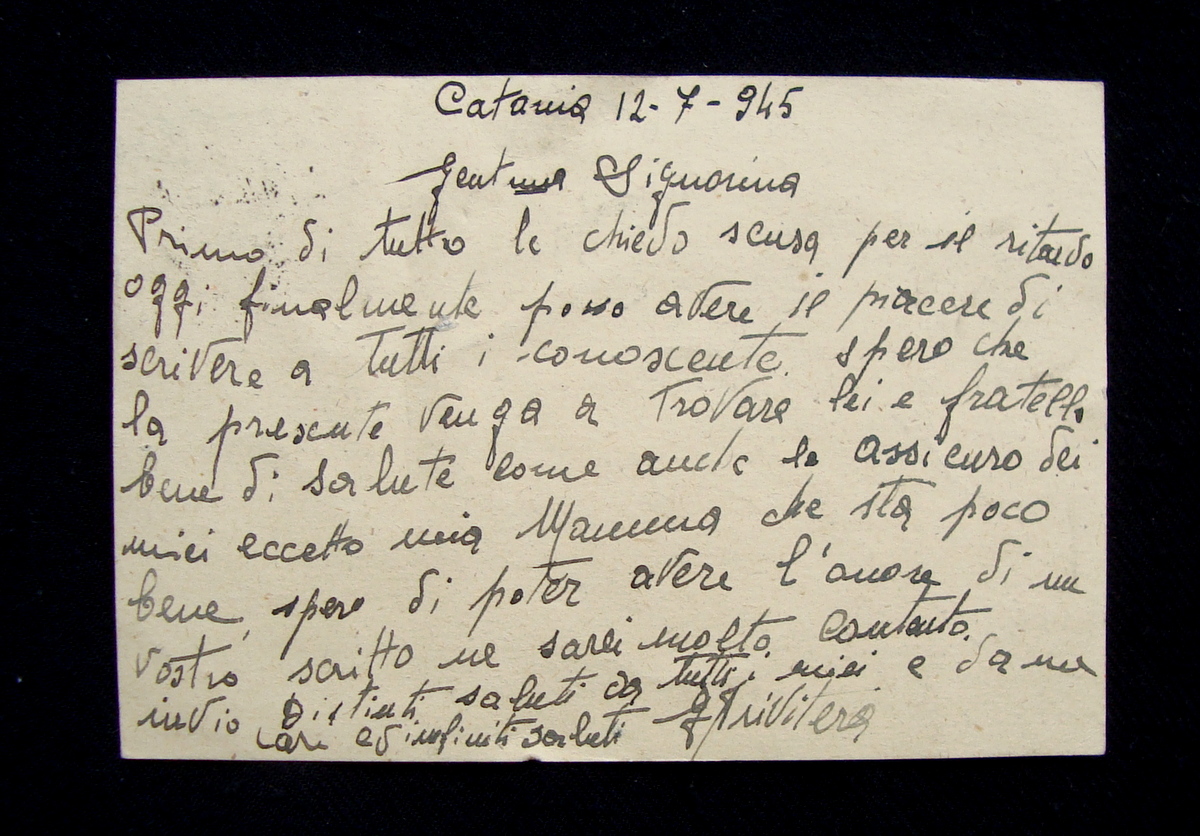 Catania 12-7-945
Gent.ma Signorina
Primo di tutto le chiedo scusa per il ritardo
oggi finalmente posso avere il piacere di
scrivere a tutti i conoscente. spero che
la presente venga a trovare lei e fratello
bene di salute come anche le assicuro dei
miei eccetto mia Mamma che sta poco
bene, spero di poter avere l'onore di un
vostro scritto ne sarei molto contento.
Distinti saluti da tutti i miei e da me
invio cari ed infiniti saluti Privitera